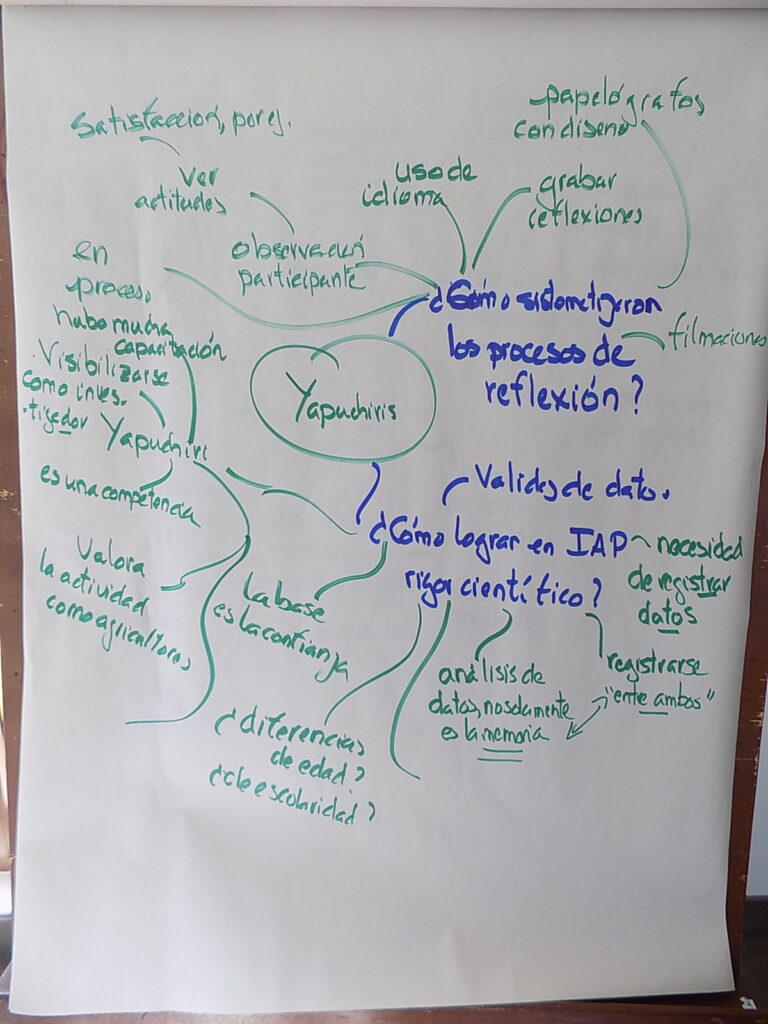 satisfacción, por ej.
ver
actitudes
observación
participante
uso de
idioma
papelógrafos
con diseño
grabar
reflexiones
¿Cómo sistematizaron
los procesos de
reflexión?
filmaciones
en
proceso,
hubo mucha
capacitación
Visibilizarse
como inves-
tigador
Yapuchiri
es una competencia
Valora
la actividad
como agricultores
Yapuchiris
Valides de datos.
¿Cómo lograr en IAP
rigor científico?
necesidad
de registrar
datos
registrarse
"entre ambos"
análisis de
datos, no solamente
es la memoria
La base
es la confianza
¿diferencias
de edad?
¿de escolaridad?